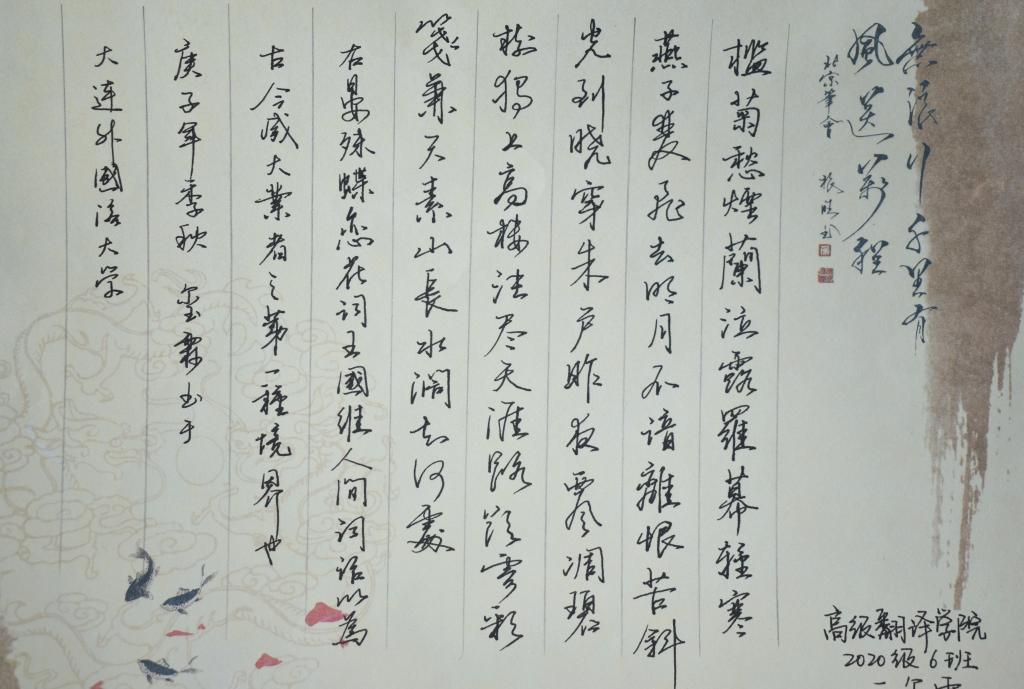 無浪行千里有
風送萬程
檻菊愁煙蘭泣露羅幕輕寒
燕子雙飛去明月不諳離恨苦斜
光到曉穿朱户昨夜西風凋碧
樹獨上高樓望尽天涯路欲寄彩
箋兼尺素山長水濶知何處
右晏殊蝶恋花词王國維人间词话以為
古今成大業者之第一種境界也
庚子年季秋 玺霖书于
大连外國语大学
高级翻译学院
2020级6班